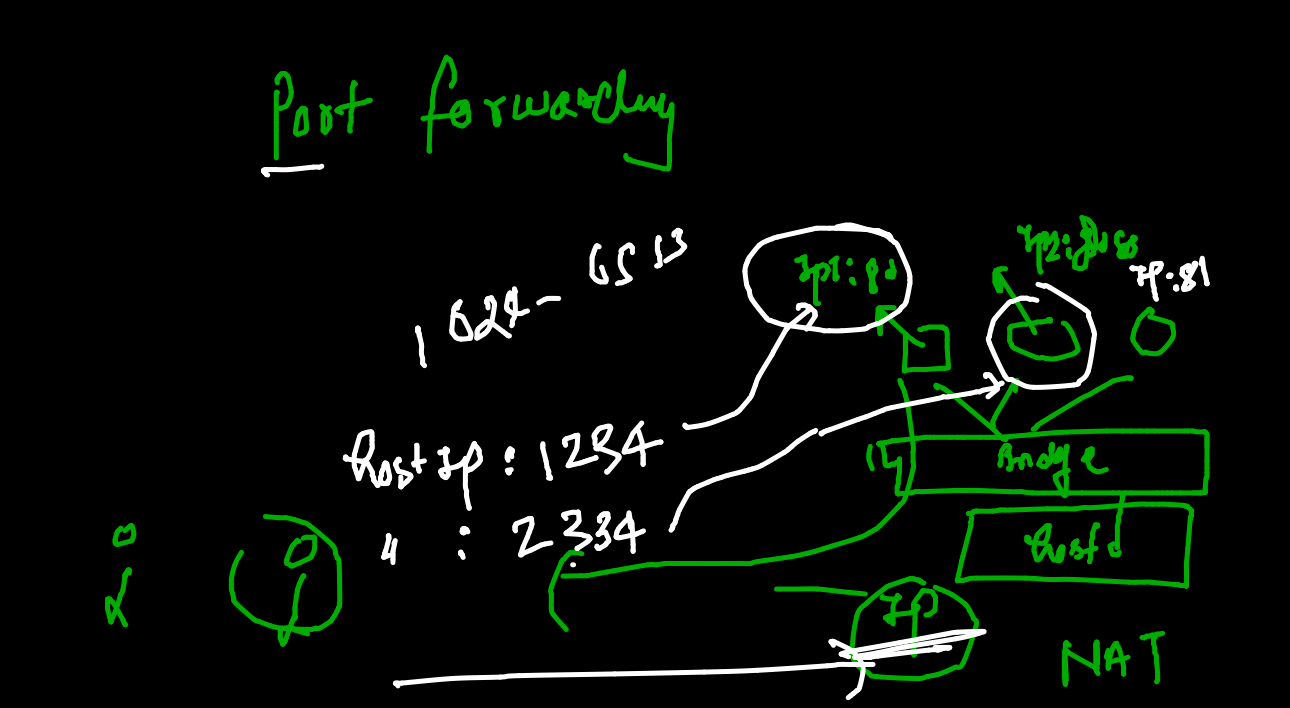 Port forwarding
1024 - 6513
IP1:P1
IP:81
host IP : 1234
" : 2334
Bridge
host
IP
NAT